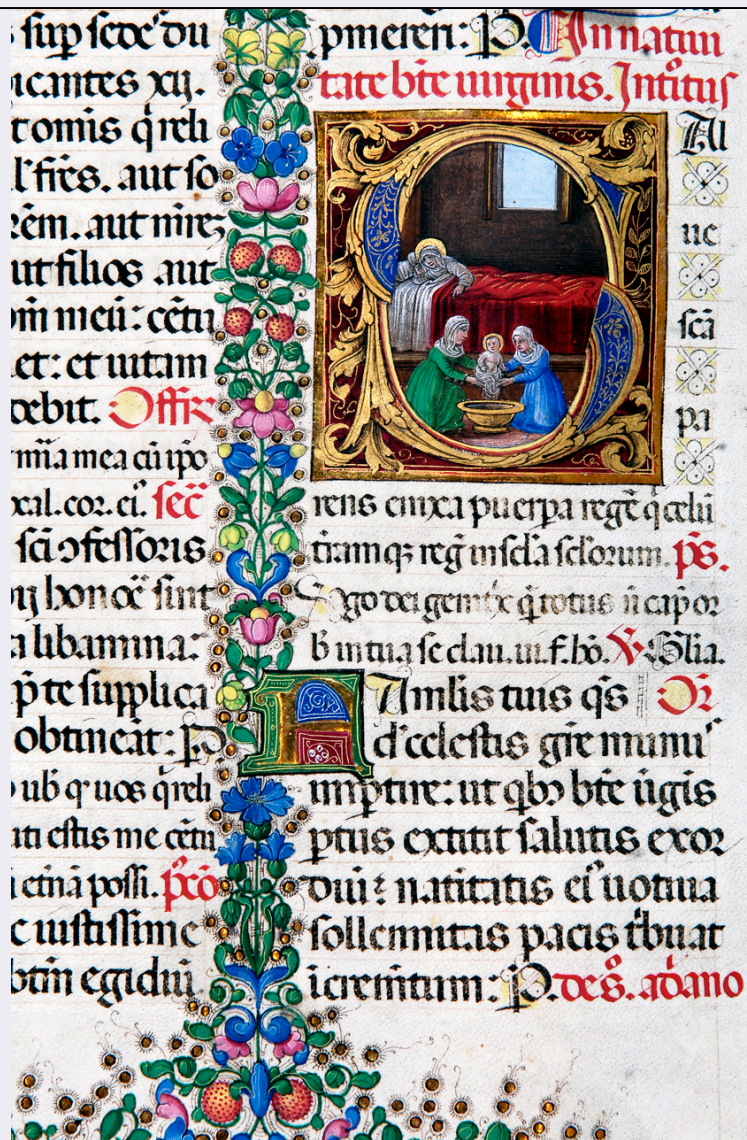 sup sede du
icantes xij.
tomis q̇ reli
l' fr̄es. aut so
rēm. aut mr̄ez
ut filios aut
meū: cētū
et: et uitam
debit. Offr̄
mea cū ip̄o
cor. ei'. sec̄
sc̄i ɔfessoris
sint
a libamina:
p̄ te supplica
obtineat: P
ub' q' uos q' reli
uti estis me cētū
possi. p̄cō
c iustissime
btm̄ egidiū
pmereri: P. In natiui
tate bt̄e uirginis. Intoitus
Al
ue
sc̄a
pa
rens enixa puerpa regē q̇ celū
tiamq; reg̃ in sc̄la sc̄lorum. p̄s.
Ugo dei genitx q̇ totus n̄ cap̃ or
b' in tua se clau. ui. f. hō. V. Glia.
Amlis tuis q̄s Or̄
d' celestis gr̄e munu'
imptire: ut qbꝫ bt̄e ūgis
ptus extitit salutis exor
diū: natitatis ei' uotiua
sollemnitas pacis tbuat
icrem̄tum: P. de s̄. adriano